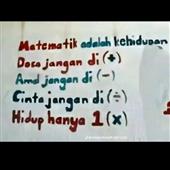 Matematik adalah kehidupan
Dosa jangan di (+)
Amal jangan di (-)
Cinta jangan di (÷)
Hidup hanya 1 (x)